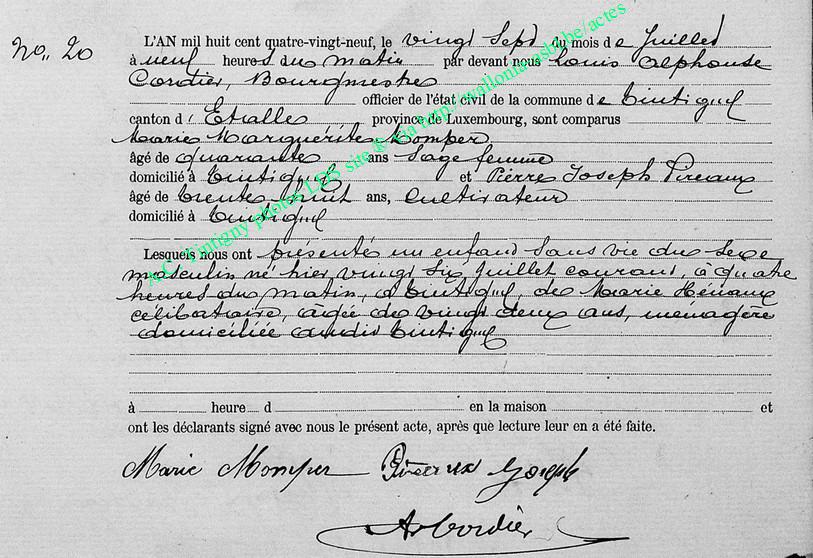 No. 20
L'AN mil huit cent quatre-vingt-neuf, le vingt Sept du mois de Juillet
à neuf heures du matin par devant nous Louis Alphonse
Cordier, Bourgmestre
officier de l'état civil de la commune de tintigny
canton d' Etalle province de Luxembourg, sont comparus
Marie Marguérite Momper
âgé de quarante ans Sage femme
domicilié à tintigny et Pierre Joseph Pireaux
âgé de trente huit ans, Cultivateur
domicilié à tintigny
Lesquels nous ont présenté un enfant Sans vie du Sexe
masculin né hier, vingt Six Juillet courant, à quatre
heures du matin, à tintigny, de Marie
célibataire, agée de vingt deux ans, ménagère
domiciliée audit tintigny
à heure d en la maison et
ont les déclarants signé avec nous le présent acte, après que lecture leur en a été faite.
Marie Momper Joseph
Cordier
A.C. Tintigny photos LPJS site @ via http://wallonia-asbl.be/actes